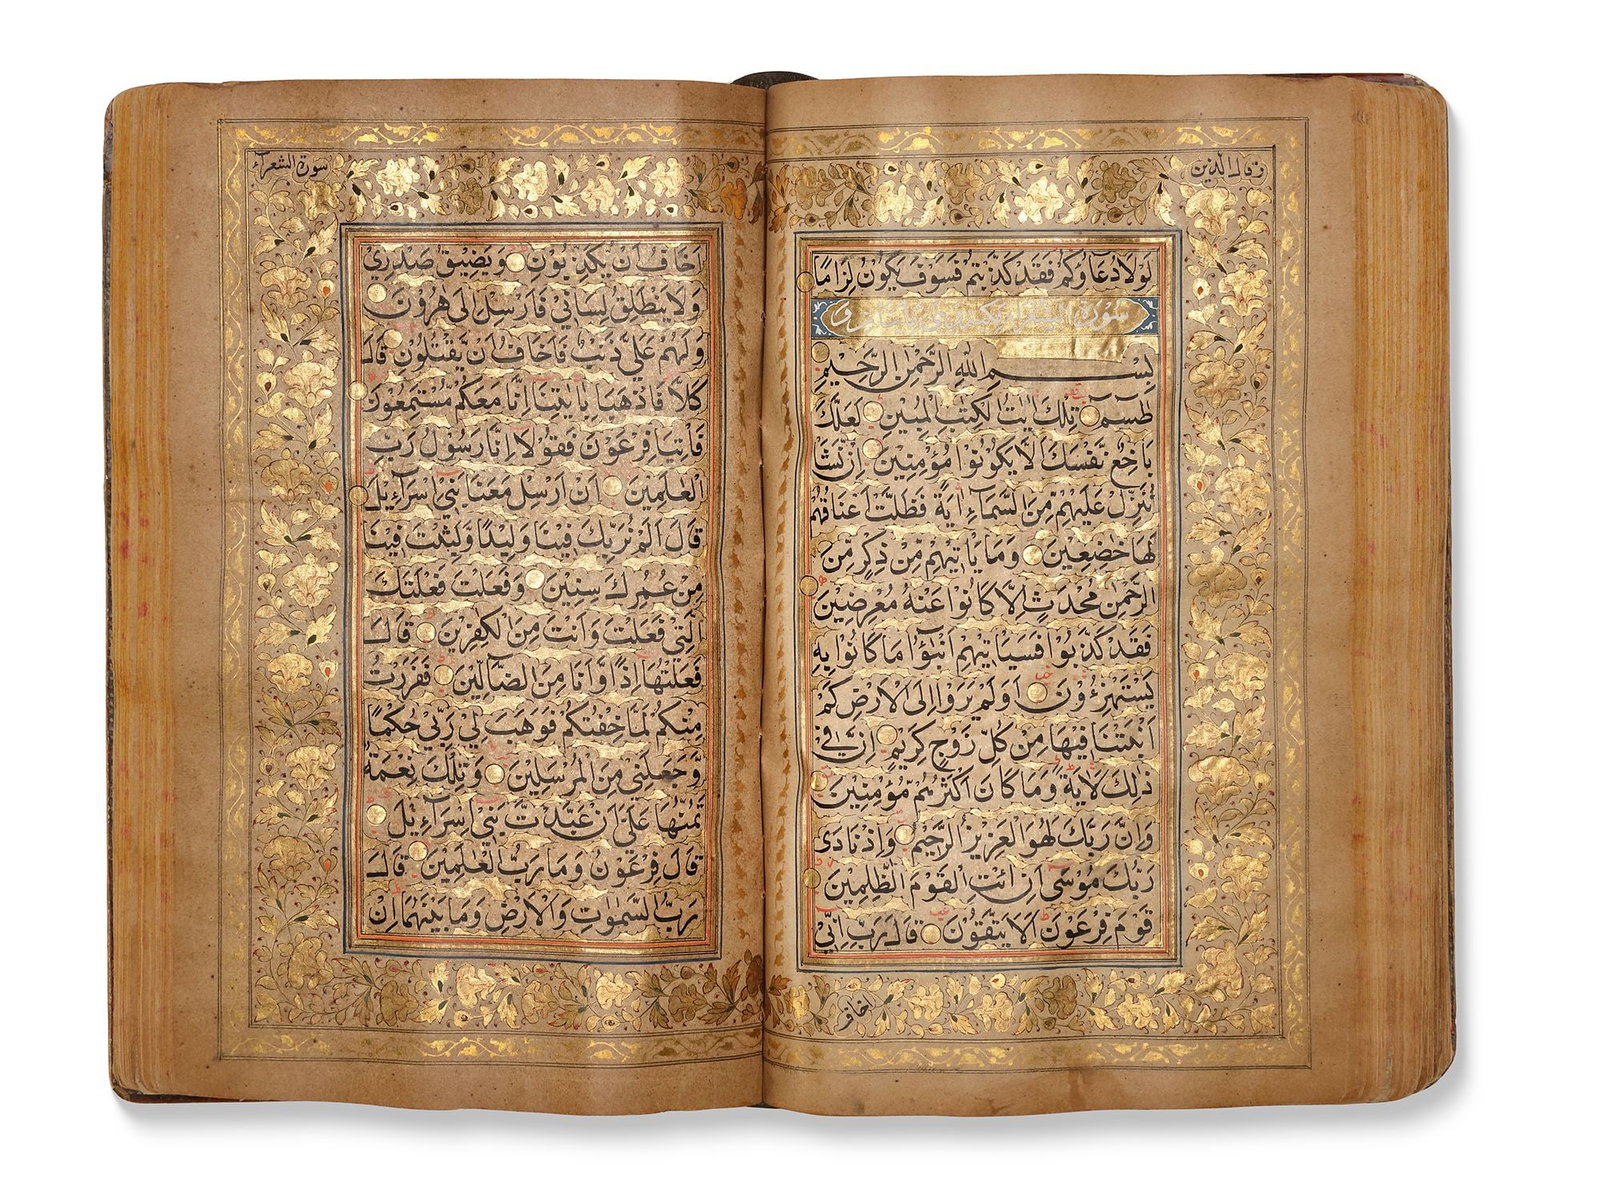 وقال الذين
لَوْلَا دُعَاؤُكُمْ فَقَدْ كَذَّبْتُمْ فَسَوْفَ يَكُونُ لِزَامًا
سورة الشعراء
بِسْمِ اللهِ الرَّحْمٰنِ الرَّحِيْمِ
طٰسٓمٓ تِلْكَ اٰيٰتُ الْكِتٰبِ الْمُبِيْنِ لَعَلَّكَ
بَاخِعٌ نَفْسَكَ اَلَّا يَكُوْنُوْا مُؤْمِنِيْنَ اِنْ نَشَأْ
نُنَزِّلْ عَلَيْهِمْ مِنَ السَّمَآءِ اٰيَةً فَظَلَّتْ اَعْنَاقُهُمْ
لَهَا خٰضِعِيْنَ وَمَا يَأْتِيْهِمْ مِنْ ذِكْرٍ مِنَ
الرَّحْمٰنِ مُحْدَثٍ اِلَّا كَانُوْا عَنْهُ مُعْرِضِيْنَ
فَقَدْ كَذَّبُوْا فَسَيَأْتِيْهِمْ اَنْبٰٓؤُا مَا كَانُوْا بِهِ
يَسْتَهْزِءُوْنَ اَوَلَمْ يَرَوْا اِلَى الْاَرْضِ كَمْ
اَنْبَتْنَا فِيْهَا مِنْ كُلِّ زَوْجٍ كَرِيْمٍ اِنَّ فِيْ
ذٰلِكَ لَاٰيَةً وَمَا كَانَ اَكْثَرُهُمْ مُؤْمِنِيْنَ
وَاِنَّ رَبَّكَ لَهُوَ الْعَزِيْزُ الرَّحِيْمُ وَاِذْ نَادٰى
رَبُّكَ مُوْسٰى اَنِ ائْتِ الْقَوْمَ الظّٰلِمِيْنَ
قَوْمَ فِرْعَوْنَ اَلَا يَتَّقُوْنَ قَالَ رَبِّ اِنِّيْ
اخاف
سورة الشعراء
اَخَافُ اَنْ يُكَذِّبُوْنِ وَيَضِيْقُ صَدْرِيْ
وَلَا يَنْطَلِقُ لِسَانِيْ فَاَرْسِلْ اِلٰى هٰرُوْنَ
وَلَهُمْ عَلَيَّ ذَنْبٌ فَاَخَافُ اَنْ يَقْتُلُوْنِ قَالَ
كَلَّا فَاذْهَبَا بِاٰيٰتِنَا اِنَّا مَعَكُمْ مُسْتَمِعُوْنَ
فَاْتِيَا فِرْعَوْنَ فَقُوْلَا اِنَّا رَسُوْلُ رَبِّ
الْعٰلَمِيْنَ اَنْ اَرْسِلْ مَعَنَا بَنِيْ اِسْرَآءِيْلَ
قَالَ اَلَمْ نُرَبِّكَ فِيْنَا وَلِيْدًا وَلَبِثْتَ فِيْنَا
مِنْ عُمُرِكَ سِنِيْنَ وَفَعَلْتَ فَعْلَتَكَ
الَّتِيْ فَعَلْتَ وَاَنْتَ مِنَ الْكٰفِرِيْنَ قَالَ
فَعَلْتُهَا اِذًا وَاَنَا مِنَ الضَّآلِّيْنَ فَفَرَرْتُ
مِنْكُمْ لَمَّا خِفْتُكُمْ فَوَهَبَ لِيْ رَبِّيْ حُكْمًا
وَجَعَلَنِيْ مِنَ الْمُرْسَلِيْنَ وَتِلْكَ نِعْمَةٌ
تَمُنُّهَا عَلَيَّ اَنْ عَبَّدْتَ بَنِيْ اِسْرَآءِيْلَ
قَالَ فِرْعَوْنُ وَمَا رَبُّ الْعٰلَمِيْنَ قَالَ
رَبُّ السَّمٰوٰتِ وَالْاَرْضِ وَمَا بَيْنَهُمَا اِنْ